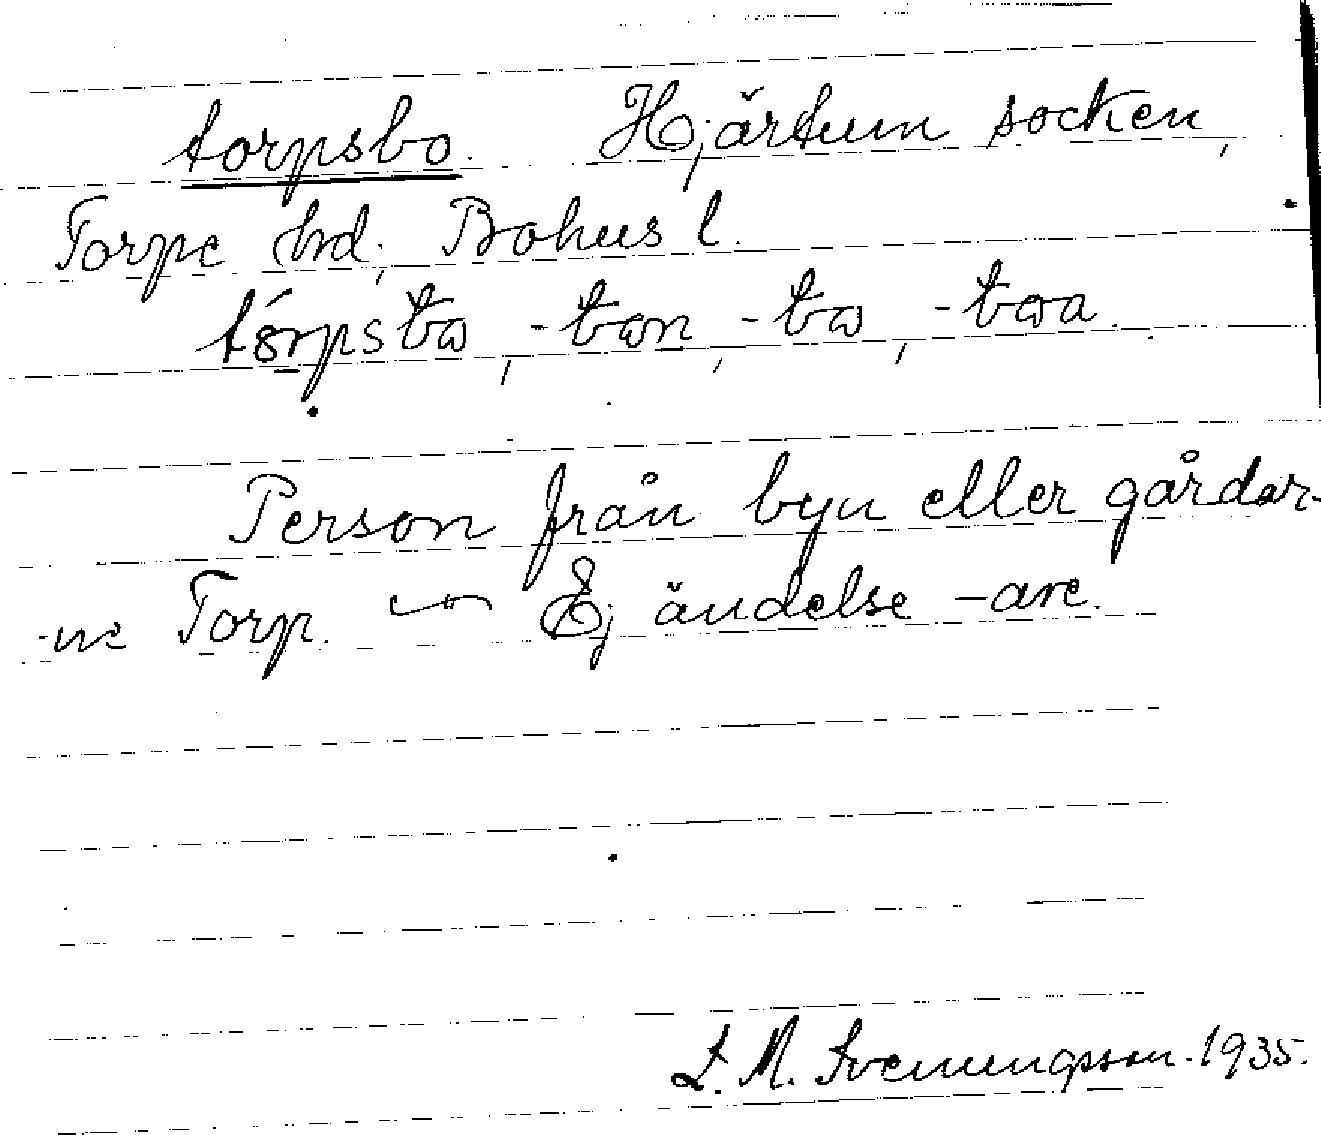 torpsbo. Hjärtum socken,
Torpe hrd, Bohus l.
Person från byn eller gårdar-
ne Torp. — Ej ändelse -are.
L. M. Svenungsson. 1935.